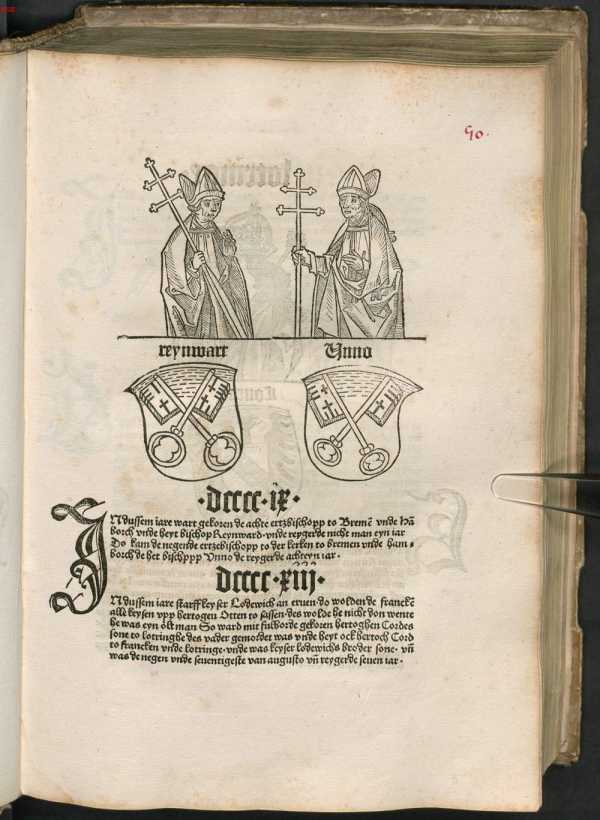 90.
reynwart
Vnno
·dcccc·ix·
INdussem iare wart gekoren de achte ertzbischopp to Bremē vnde Hā
borch vnde heyt bischop Reynward·vnde reygerde nicht man eyn iar
Do kam de negende ertzcbischopp to der kerken to bremen vnde ham⸗
borch de het bischppp Vnno de reygerde achteyn iar·
dcccc·xiij·
INdussem iare starff keyser Lodewich an eruen·do wolden de franckē
alle keysen vpp hertogen Otten to sassen·des wolde he nicht don wente
he was eyn olt man So ward mit fulborde gekoren hertoghen Cordes
sone to lotringhe des vader gemordet was vnde heyt ock hertoch Cord
to francken vnde lotringe·vnde was keyser lodewichs broder sone· vn̄
was de negen vnde seuentigeste van augusto vn̄ reygerde seuen iar·